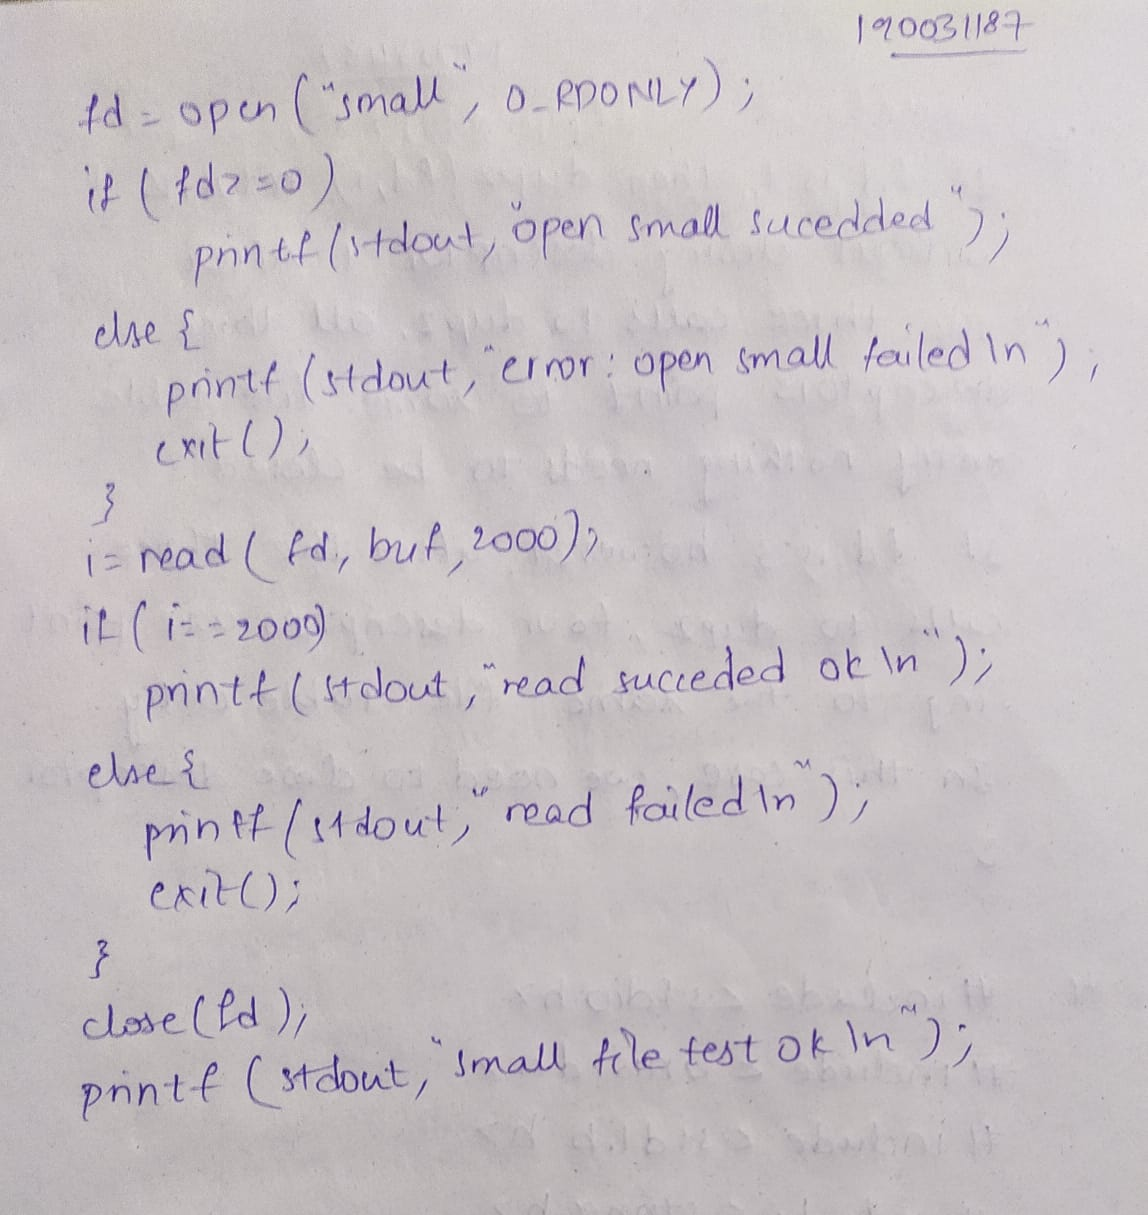 190031187
fd = open ("small", O_RDONLY);
if ( fd>=0)
printf(stdout, "open small sucedded");
else {
printf (stdout, "error: open small failed \n");
exit();
}
i= read ( fd, buf, 2000);
if ( i==2000)
printf ( stdout, "read succeded ok \n");
else {
printf (stdout, "read failed \n");
exit();
}
close(fd);
printf (stdout, "small file test ok \n");